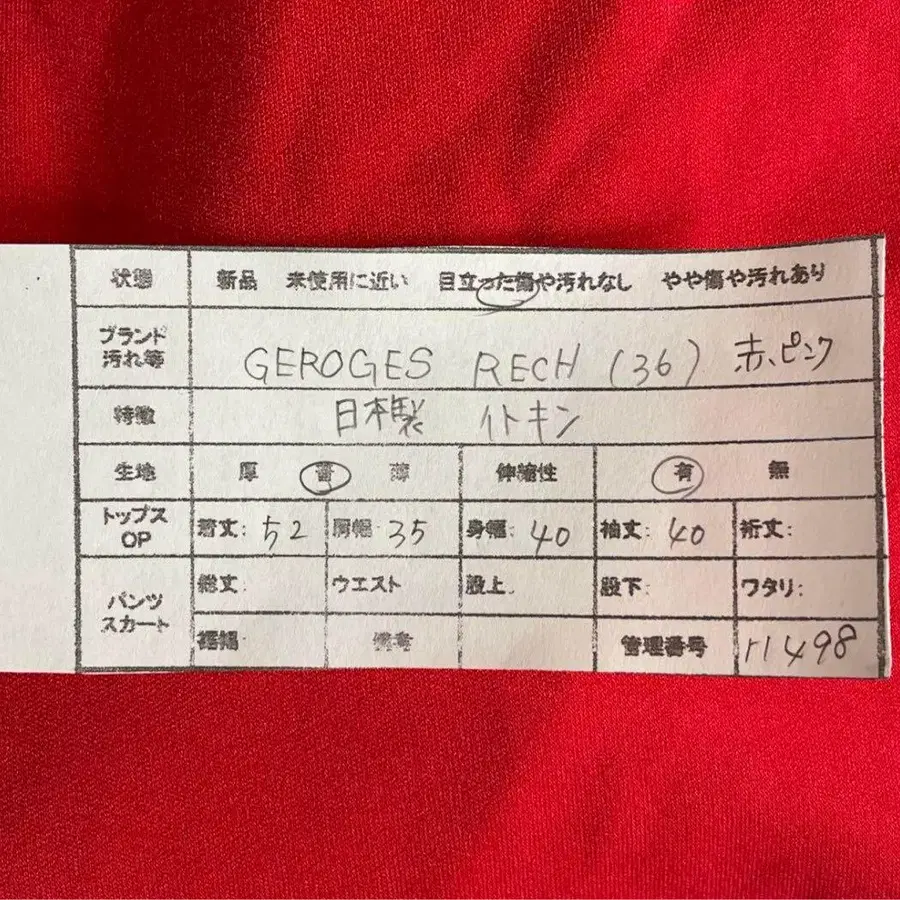 状態 新品 未使用に近い 目立った傷や汚れなし やや傷や汚れあり
ブランド
汚れ等 GEROGES RECH (36) 赤、ピンク
特徴 日本製 イトキン
生地 厚 普 薄 伸縮性 有 無
トップス
OP 着丈: 52 肩幅: 35 身幅: 40 袖丈: 40 裄丈:
パンツ
スカート 総丈: ウエスト 股上. 股下: ワタリ:
裾幅 備考 管理番号 r1498